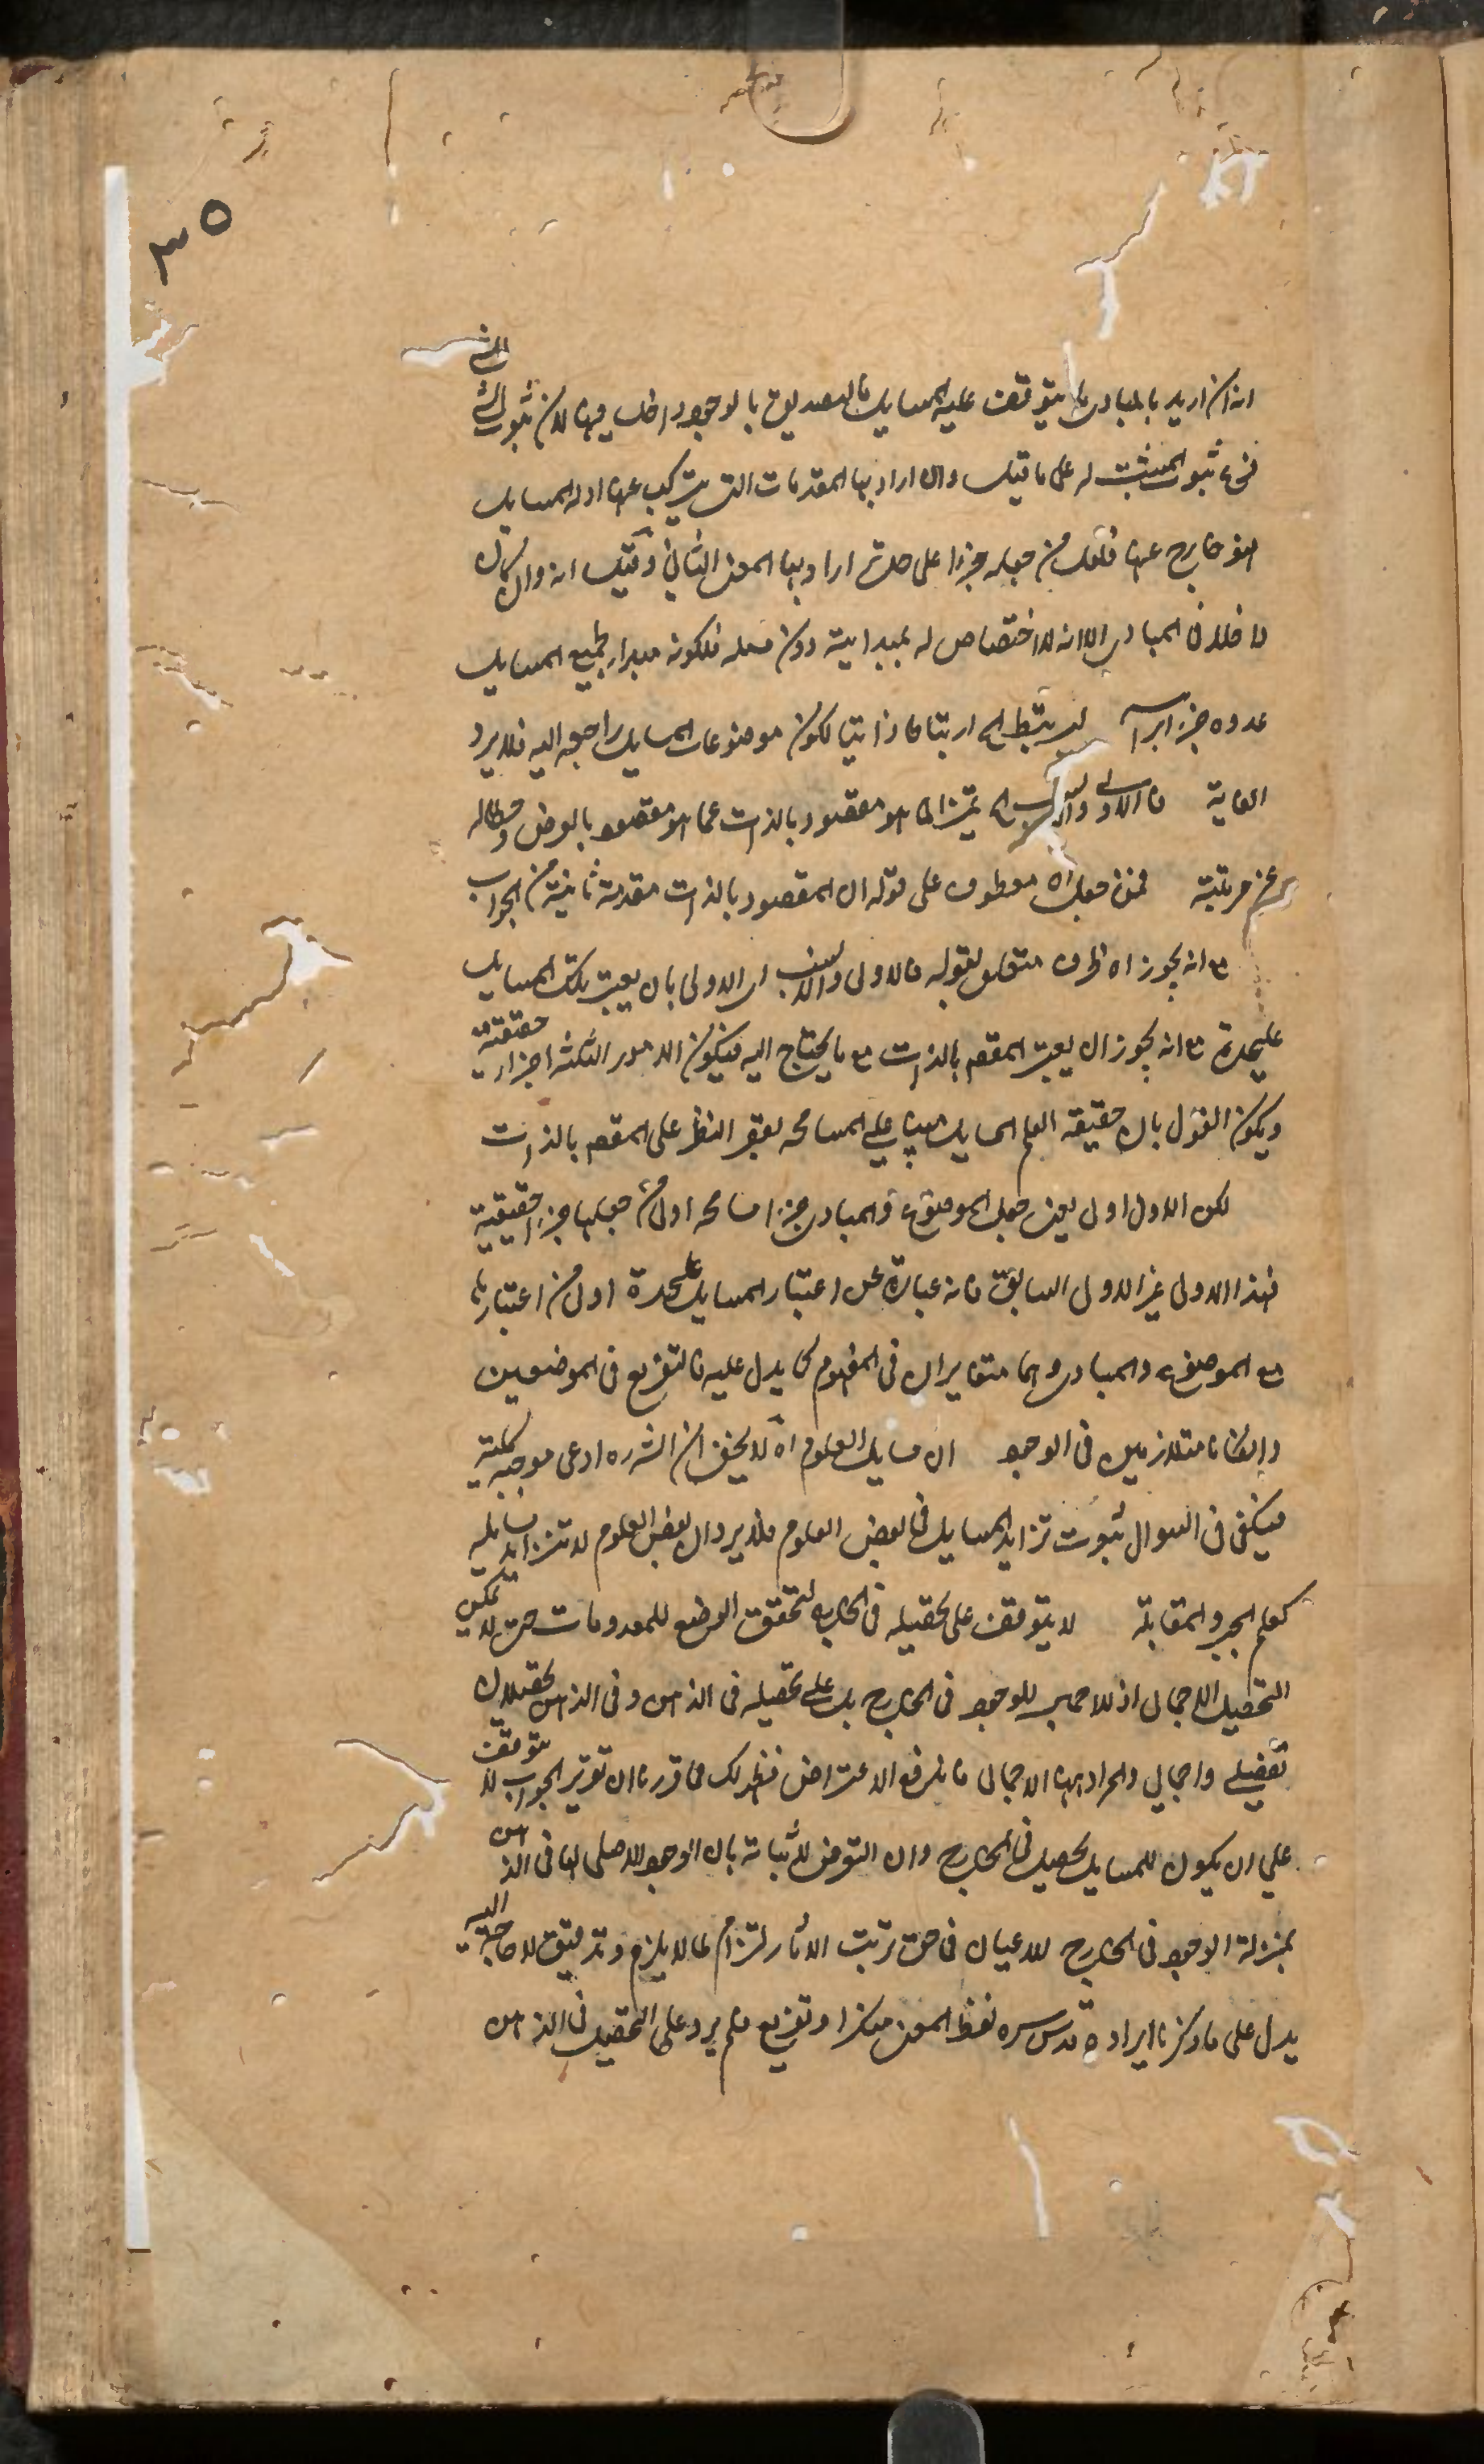 ٣٥
انه ان اريد بالمبادى ما يتوقف عليه المسايل فالتصديق بالوجود داخل فيها لان ثبوت الشئ للشئ
فرع ثبوت المثبت له على ما قيل وان اراد بها المقدمات التى يتركب عنها ادلة المسايل
فهو خارج عنها فلعل من جعله جزءا على حدة اراد بها المعنى الثانى وقيل انه وان كان
داخلا فى المبادى الا انه لا اختصاص له بمبدائية دون مسئلة فلكونه مبدأ لجميع المسايل
عدوه جزءا برأسه ليرتبط اه ارتباطا ذاتيا لكون موضوعات المسايل راجعة اليه فلا يرد
الغاية فالاولى والانسب اه تمييزا لما هو مقصود بالذات عما هو مقصود بالعرض وحطا له
عن مرتبته فمن جعل اه معطوف على قوله ان المقصود بالذات مقدمة ثانية من الجواب
مع انه يجوز اه ظرف متعلق بقوله فالاولى والانسب اى الاولى بان يعتبر تلك المسايل
عليحدة مع انه يجوز ان يعتبر المقصود بالذات مع ما يحتاج اليه فيكون الامور الثلثة اجزاء حقيقية
ويكون القول بان حقيقة العلم المسايل مبنيا على المسامحة بقصر النظر على المقصود بالذات
لكن الاول اولى يعنى جعل الموضوع والمبادى جزءا مسامحة اولى من جعلها جزءا حقيقية
فهذا الاولى غير الاولى السابق فانه عبارة عن اعتبار المسايل عليحدة اولى من اعتبارها
مع الموضوع والمبادى وهما متغايران فى المفهوم كما يدل عليه فالتفريع فى الموضعين
وان كانا متلازمين فى الوجود ان مسايل العلوم اه لا يخفى ان الش ره ادعى موجبة كلية
فيكفى فى السوال ثبوت تزايد المسايل فى بعض العلوم فلا يرد ان بعض العلوم لا تتزايد مسايله
كعلم الجبر والمقابلة لا يتوقف على تحصيله فى الخارج لتحقق الوضع للمعدومات حتى لا يمكن
التحصيل الاجمالى اذ للاجمالى للوجود فى الخارج بل على تحصيله فى الذهن وفى الذهن تحصيلان
تفصيلى واجمالى والمراد هنا الاجمالى فاندفع الاعتراض فظهر لك مما قررنا ان تقرير الجواب لا يتوقف
على ان يكون للمسايل تحصيل فى الخارج وان التعرض لاثباته بان الوجود الاصلى لها فى الذهن
بمنزلة الوجود فى الخارج للاعيان فى حق ترتب الاثار التزام لما لا يلزم وتدقيق لا حاجة اليه
يدل على ما ذكرنا ايراده قدس سره لفظ المعنى منكرا وتفريع فلم يرد على التحصيل فى الذهن